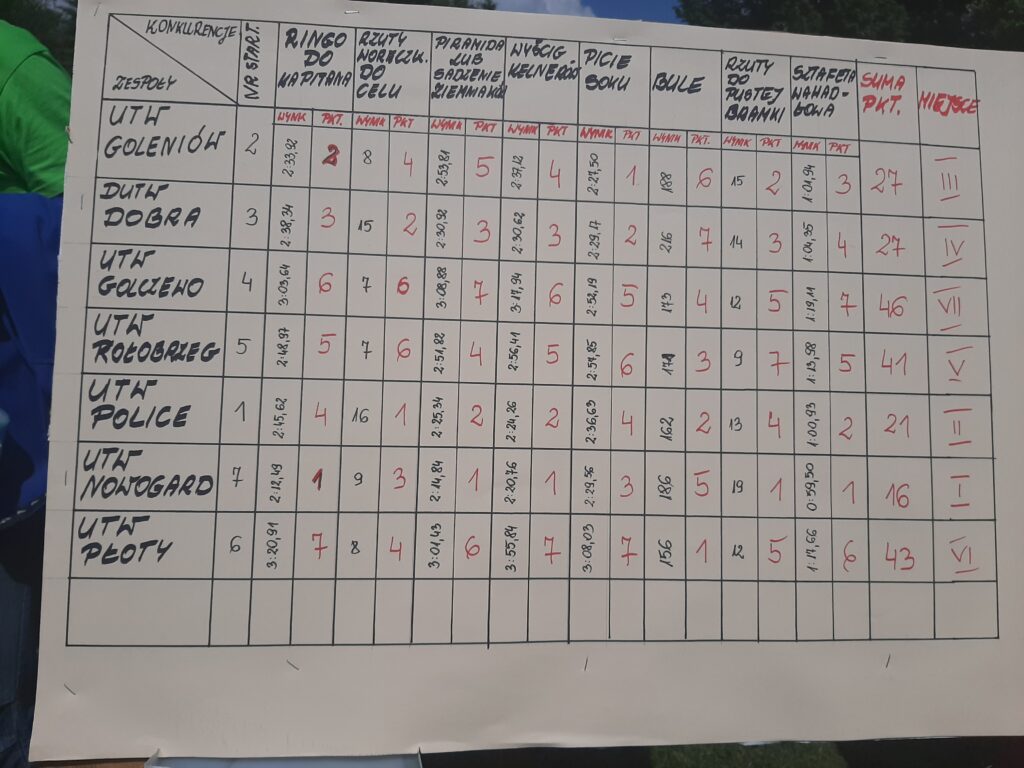 KONKURENCJE
ZESPOŁY
NR START.
RINGO DO KAPITANA
RZUTY WORECZK. DO CELU
PIRAMIDA LUB SADZENIE ZIEMNIAKÓW
WYŚCIG KELNERÓW
PICIE SOKU
BULE
RZUTY DO PUSTEJ BRAMKI
SZTAFETA WAHADŁOWA
SUMA PKT.
MIEJSCE
WYNIK PKT. WYNIK PKT WYNIK PKT WYNIK PKT WYNIK PKT WYNIK PKT. WYNIK PKT WYNIK PKT
UTW GOLENIÓW 2 2:33,92 2 8 4 2:53,81 5 2:37,12 4 2:27,50 1 188 6 15 2 1:01,94 3 27 III
DUTW DOBRA 3 2:38,34 3 15 2 2:30,92 3 2:30,62 3 2:29,17 2 216 7 14 3 1:04,35 4 27 IV
UTW GOLCZEWO 4 3:03,64 6 7 6 3:08,88 7 3:17,94 6 2:52,19 5 173 4 12 5 1:19,11 7 46 VII
UTW KOŁOBRZEG 5 2:48,97 5 7 6 2:51,82 4 2:56,41 5 2:57,85 6 171 3 9 7 1:13,98 5 41 V
UTW POLICE 1 2:45,62 4 16 1 2:25,34 2 2:24,26 2 2:36,63 4 162 2 13 4 1:00,93 2 21 II
UTW NOWOGARD 7 2:12,19 1 9 3 2:14,84 1 2:20,76 1 2:29,56 3 186 5 19 1 0:59,50 1 16 I
UTW PŁOTY 6 3:20,91 7 8 4 3:01,43 6 3:55,84 7 3:08,03 7 156 1 12 5 1:17,66 6 43 VI